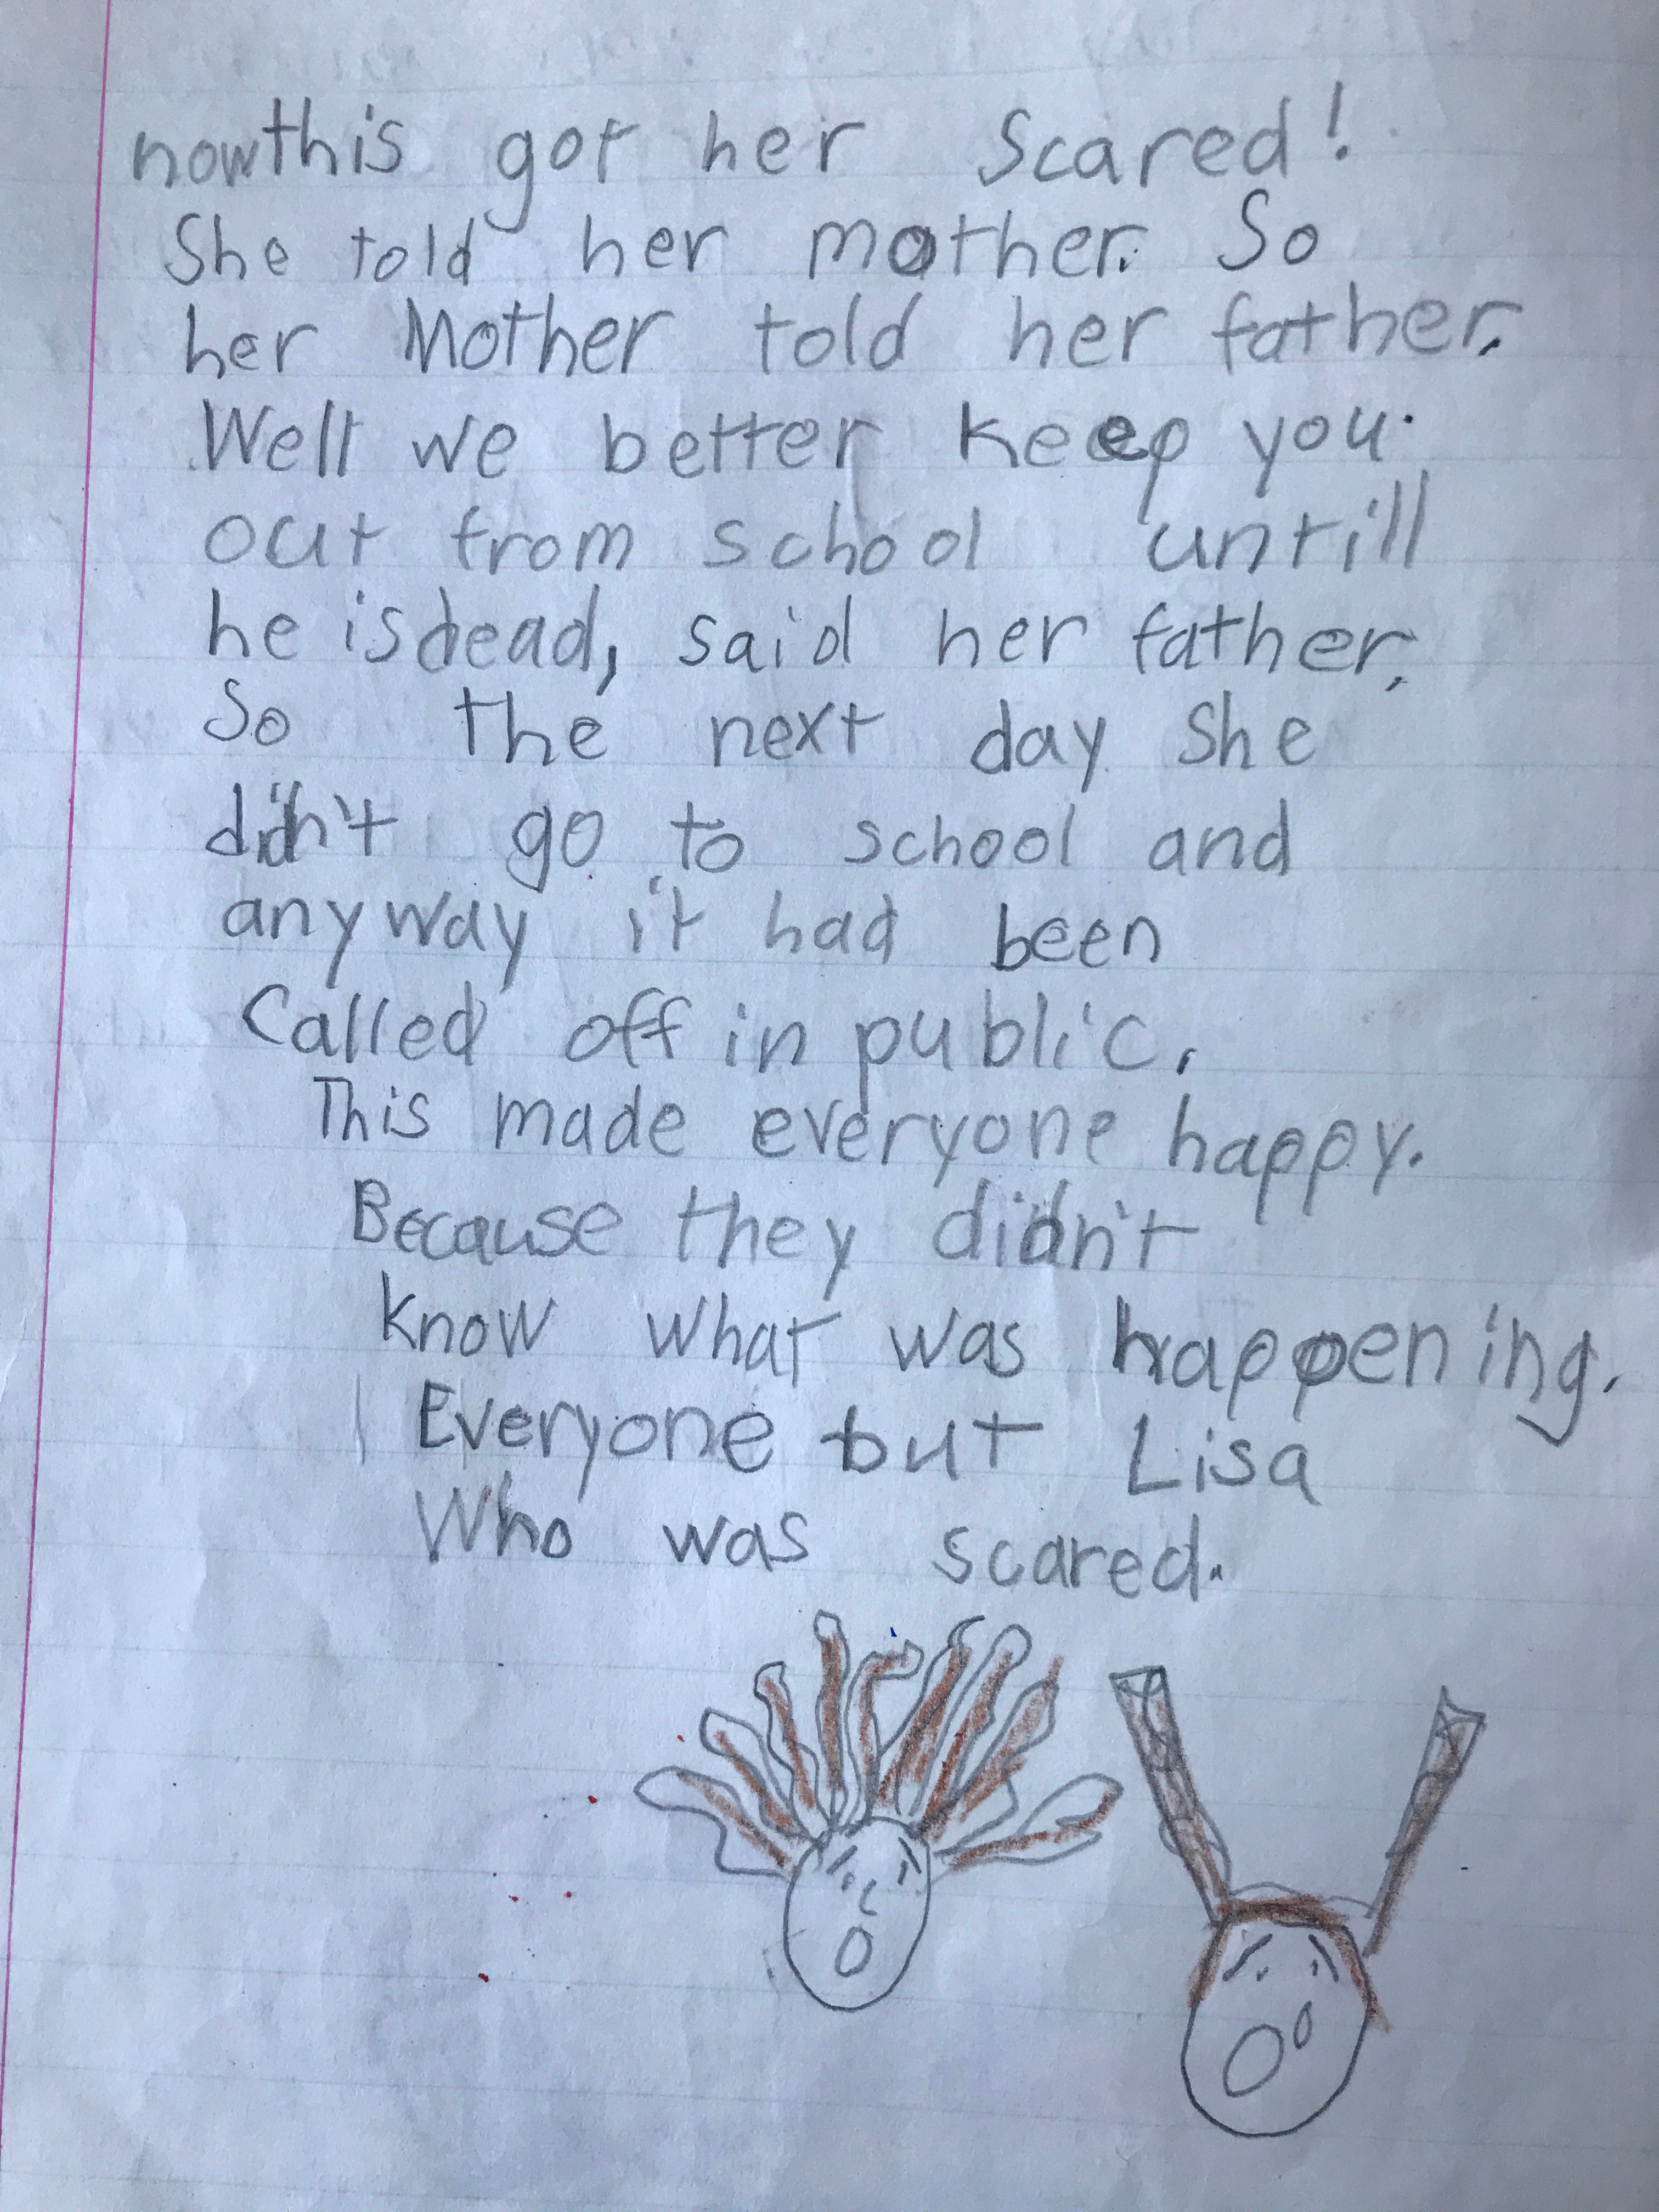 nowthis got her Scared!
She told her mother. So
her Mother told her father.
Well we better keep you
out from school untill
he is dead, said her father.
So the next day she
didn't go to school and
anyway it had been
Called off in public.
This made everyone happy.
Because they didn't
know what was happening.
Everyone but Lisa
Who was scared.